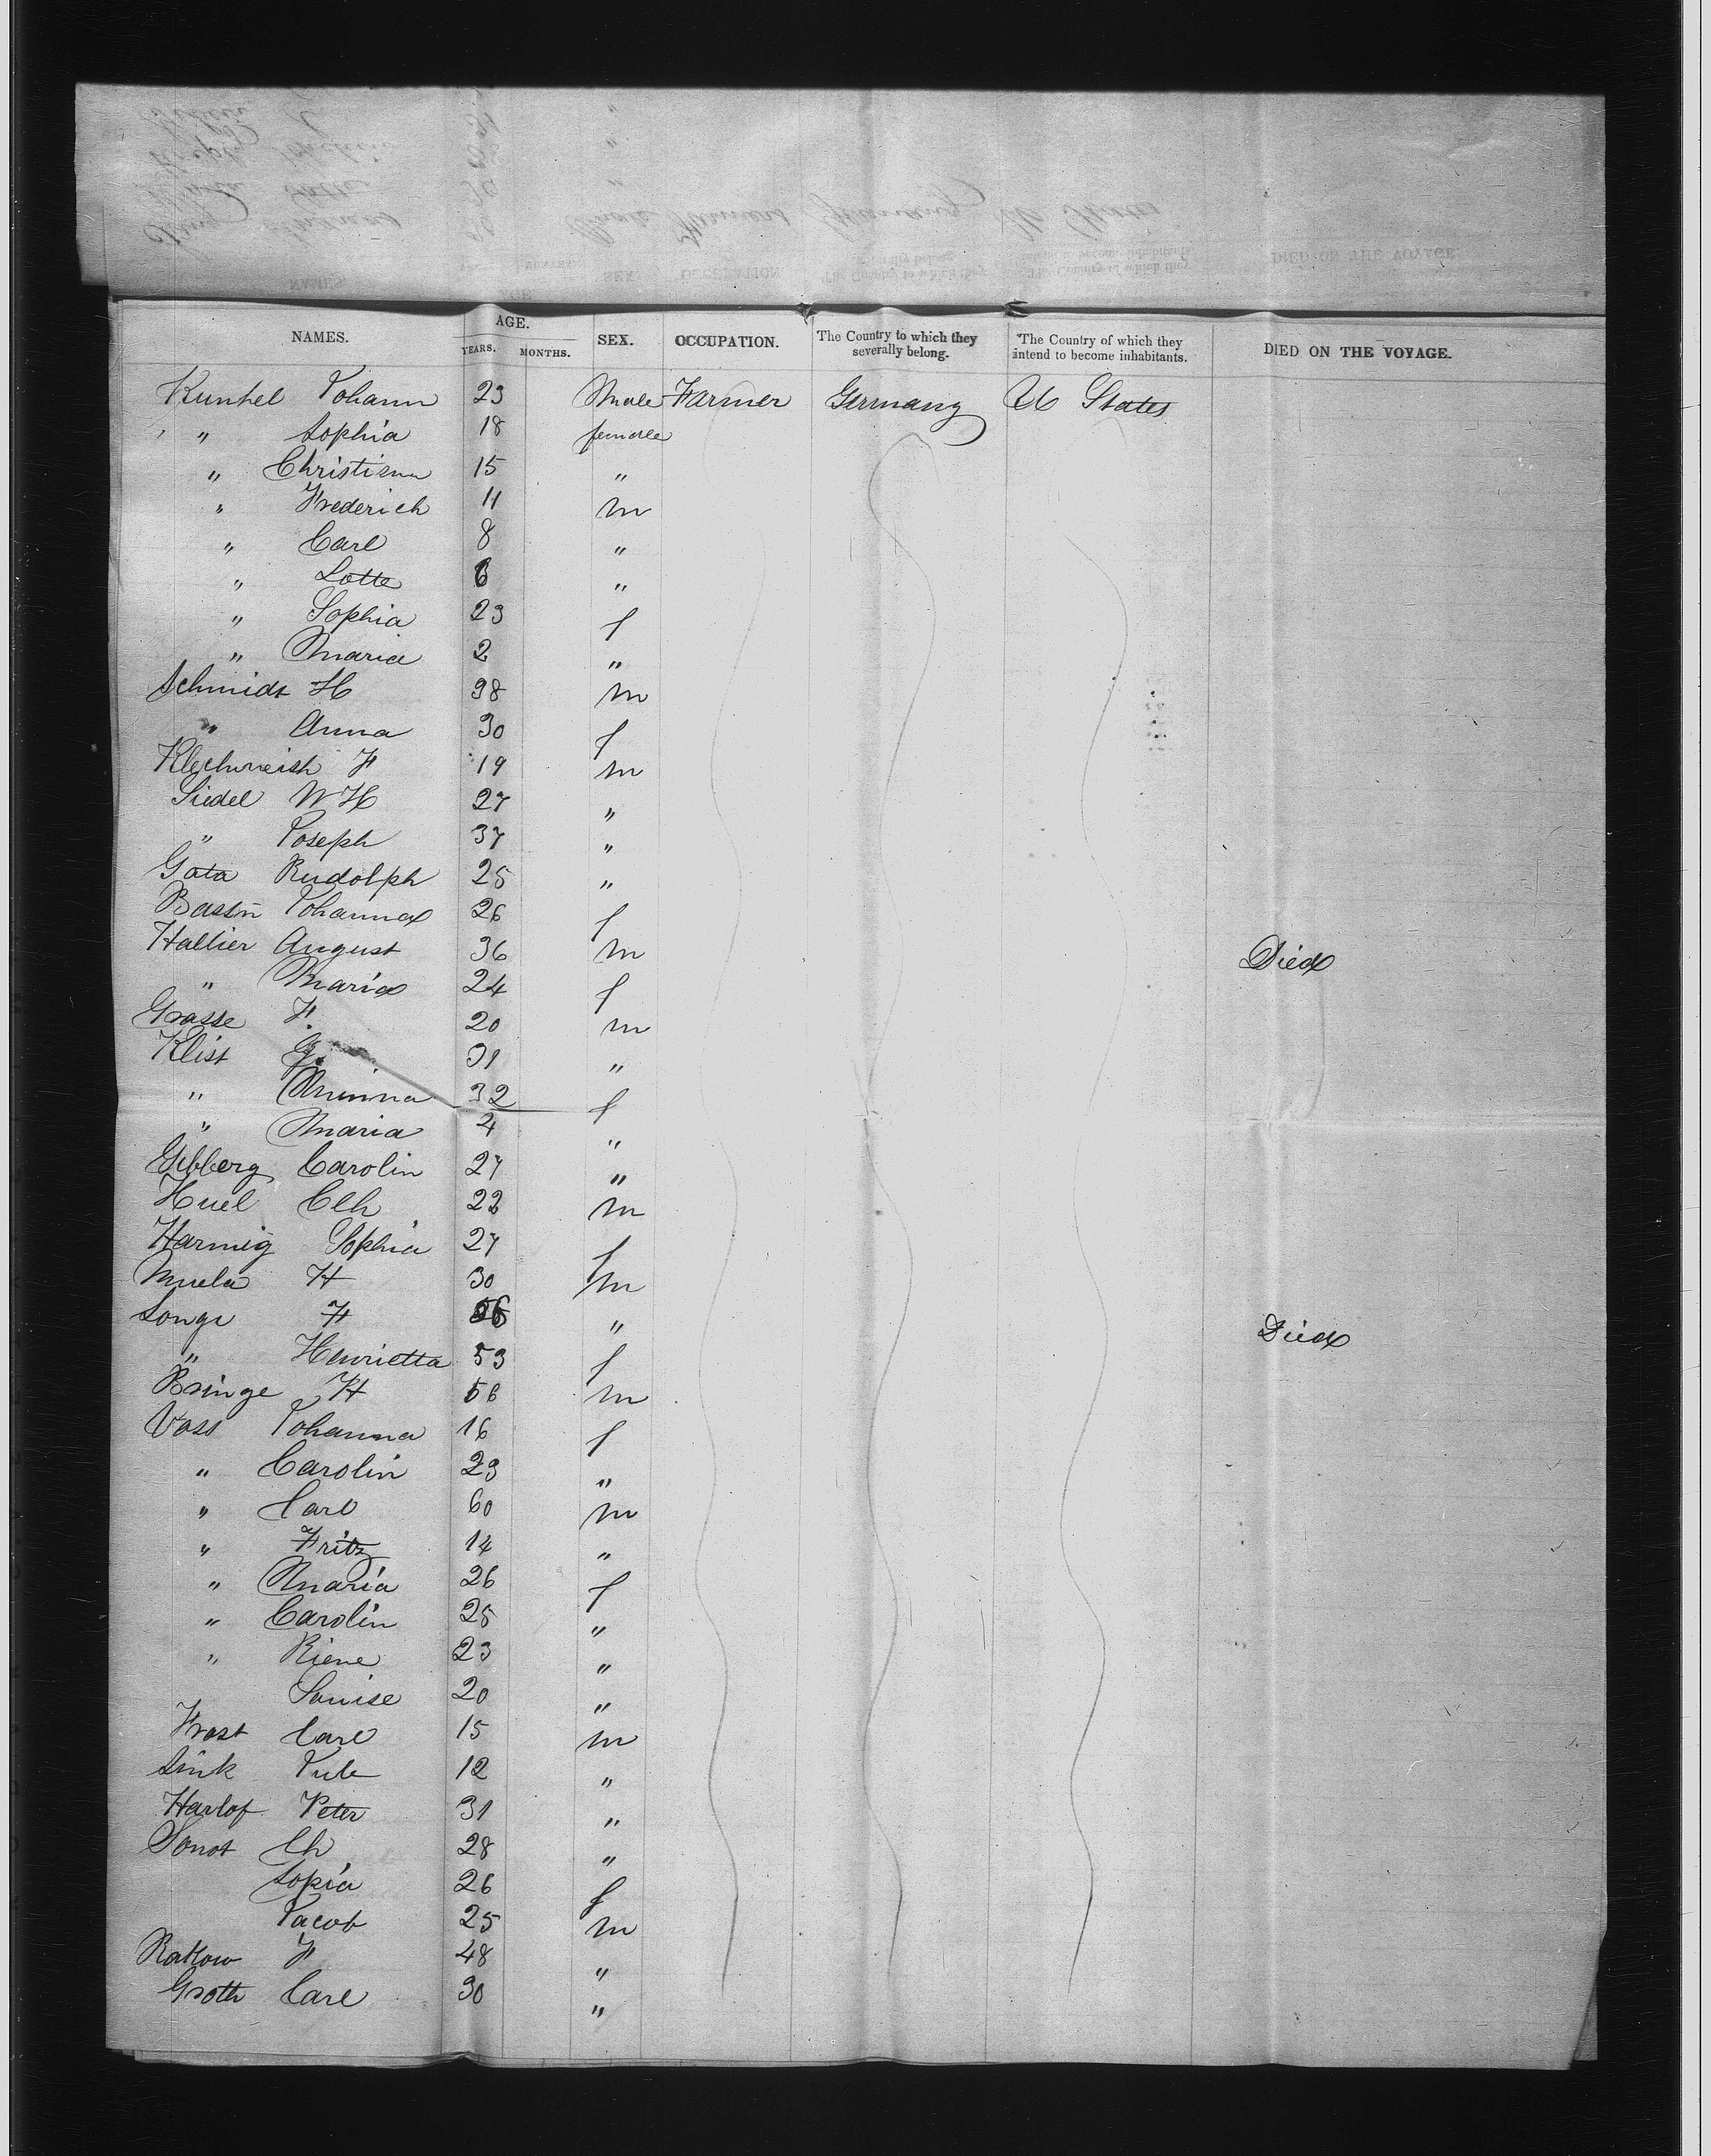 NAMES. AGE. YEARS. MONTHS. SEX. OCCUPATION. The Country to which they severally belong. The Country of which they intend to become inhabitants. DIED ON THE VOYAGE.
Kunkel Johann 23 Male Farmer Germany U States
" Sophia 18 female
" Christian 15 "
" Frederich 11 m
" Carl 8 "
" Lotte 6 "
" Sophia 23 f
" Maria 2 "
Schmidt H 38 m
" Anna 30 f
F 19 m
Siedel W H 27 "
" Joseph 37 "
Gata Rudolph 25 "
Johanna 26 f
Hallier August 36 m Died
" Maria 24 f
Grasse F. 20 m
Klist G. 31 "
" Minna 32 f
" Maria 4 "
Carolin 27 "
Huel 22 m
Harmig Sophia 27 f
Muela H 30 m
Longe F "
Died
" Henrietta 53 f
Bringe H 56 m
Voss Johanna 16 f
" Carolin 23 "
" Carl 60 m
" Fritz 14 "
" Maria 26 f
" Carolin 25 "
" Riene 23 "
Louise 20 "
Frost Carl 15 m
Sink 12 "
Harlof Peter 31 "
Ch 28 "
Sopia 26 f
Jacob 25 m
Ratkow F 48 "
Groth Carl 30 "